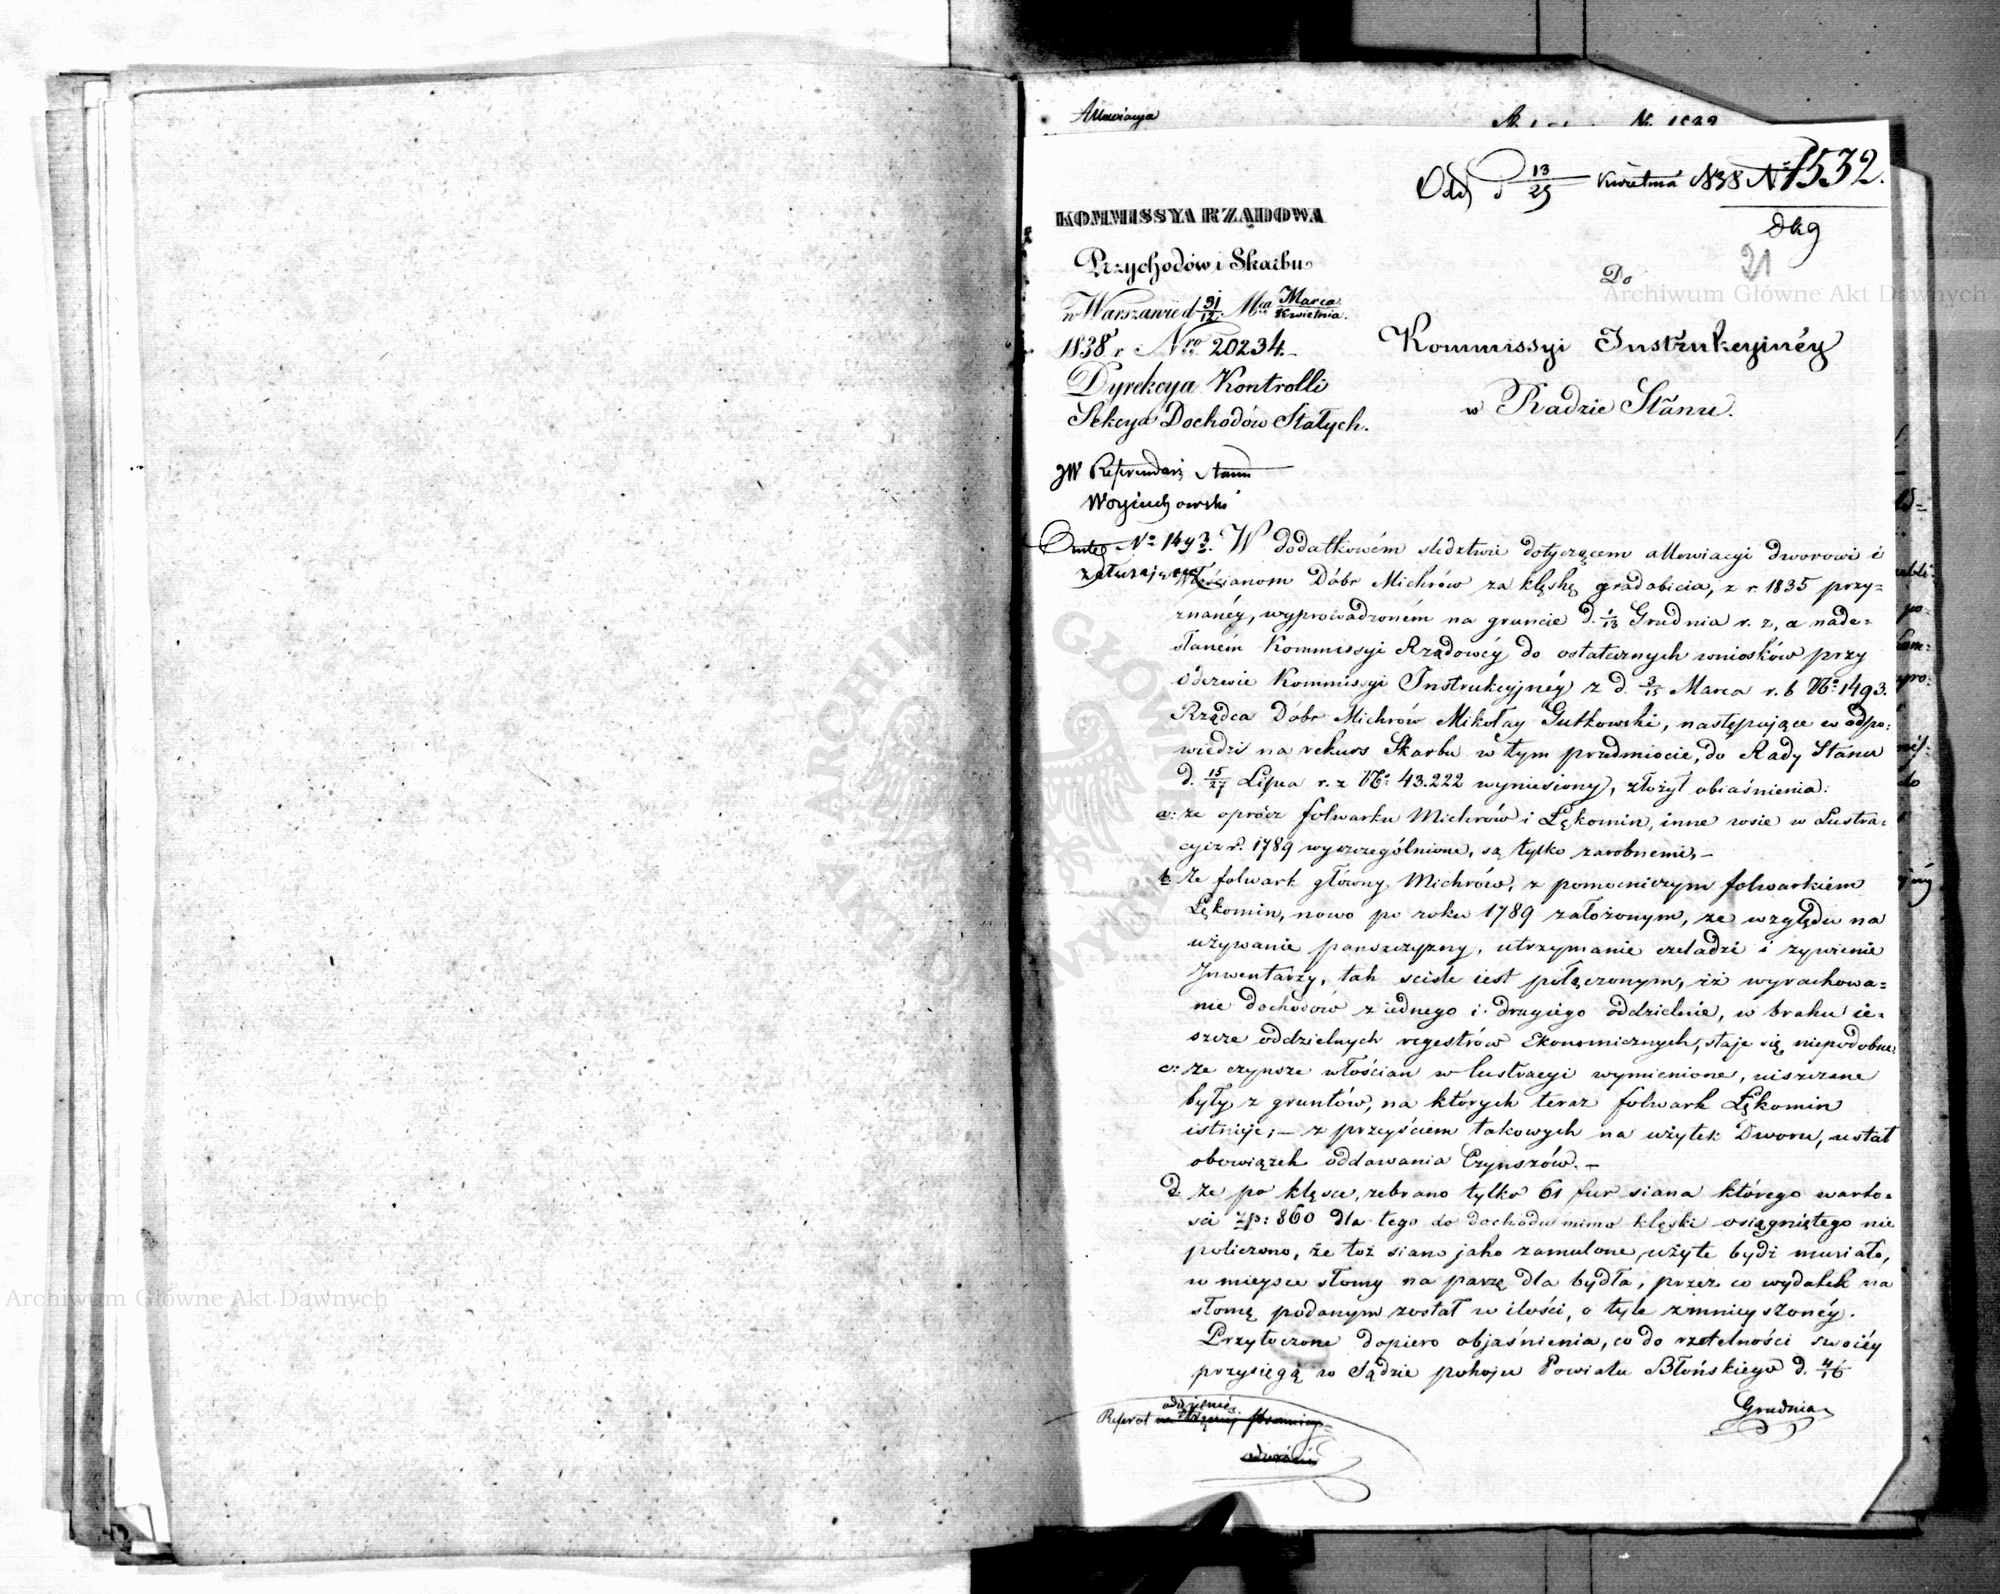 Allewiacya
Odd d 13/25 Kwietnia 1838 No 1532.
21
KOMMISSYA RZĄDOWA
Przychodów i Skarbu
w Warszawie d 31/12 Mca Marca/Kwietnia.
1838 r. Nro 20234.
Dyrekcya Kontrolli
Sekcya Dochodów Stałych.
Do
Kommissyi Instrukcyinéy
w Radzie Stanu.
JW Referendarz Stanu
Woyciechowski
No 1493.
W dodatkowém śledztwie dotyczącem allewiacyi dworowi i
Włościanom Dóbr Michrów za klęskę gradobicia, z r. 1835 przy=
znanéy, wyprowadzoném na gruncie d. 1/13 Grudnia r. z, a nade=
słaném Kommissyi Rządowéy do ostatecznych wniosków przy
odezwie Kommissyi Instrukcyjnéy z d. 3/15 Marca r. b No 1493.
Rządca Dóbr Michrów Mikołay Gutkowski, następujące w odpo=
wiedzi na rekurs Skarbu w tym przedmiocie, do Rady Stanu
d. 15/27 Lipca r. z No: 43.222 wyniesiony, złożył obiaśnienia:
a: że oprócz folwarku Michrów i Łękomin, inne wsie w Lustra=
cyi z r. 1789 wyszczególnione, są tylko zarobnemi, —
b że folwark główny Michrów, z pomocniczym folwarkiem
Łękomin, nowo po roku 1789 założonym, ze względu na
używanie pańszczyzny, utrzymanie czeladzi i żywienie
Inwentarzy, tak scisle iest połączonym, iż wyrachowa=
nie dochodów z iednego i drugiego oddzielnie, w braku ie=
szcze oddzielnych regestrów Ekonomicznych, staje się niepodobne,
c: że czynsze włościan w lustracyi wymienione, uiszczane
były z gruntów, na których teraz folwark Łękomin
istnieje; — z przeyściem takowych na użytek Dworu, ustał
obowiązek oddawania Czynszów. —
d. że po klęsce, zebrano tylko 61 fur siana którego warto=
ści zp: 860 dla tego do dochodu mimo klęski osiągniętego nie
policzono, że toż siano jako zamulone, użyte bydź musiało,
w mieysce słomy na parzę dla bydła, przez co wydatek na
słomę podanym został w ilości, o tyle zmnieyszonéy.
Przytoczone dopiero objaśnienia, co do rzetelności swoiéy
przysięgą w Sądzie pokoju Powiatu Błońskiego d. 4/16
Grudnia
Referat
Archiwum Główne Akt Dawnych
Archiwum Główne Akt Dawnych
ARCHIWUM GŁÓWNE AKT DAWNYCH